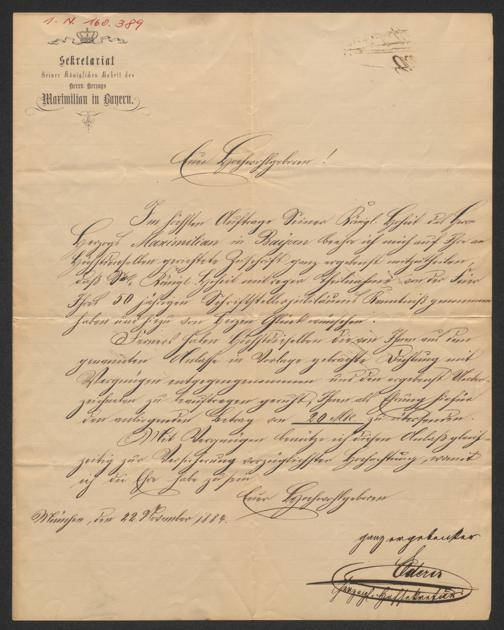 I. N. 160.389
Sekretariat
Seiner Königlichen Hoheit des
Herrn Herzogs
Maximilian in Bayern.
Euer Hochwohlgeboren!
Im höchsten Auftrage Seiner Königl. Hoheit des Herrn
Herzogs Maximilian in Bayern beehre ich mich auf Ihr an
Höchstdenselben gerichtete Zuschrift ganz ergebenst mitzutheilen,
daß Se. Königl. Hoheit mit reger Theilnahme von der Feier
Ihres 50 jährigen Schriftstellerjubiläums Kenntniß genommen
haben und hiezu von Herzen Glück wünschen.
Ferners haben Höchstdieselben die von Ihnen aus dem
genannten Anlasse in Vorlage gebrachte Dichtung mit
Vergnügen entgegengenommen und den ergebenst Unter-
zeichneten zu beauftragen geruht, Ihnen als Ehrung hiefür
den anliegenden Betrag von 20 Mk. zu übersenden.
Mit Vergnügen benütze ich diesen Anlaß gleich-
zeitig zur Versicherung vorzüglichster Hochachtung, womit
ich die Ehre habe zu sein
Euer Hochwohlgeboren
München, den 22. November 1884.
ganz ergebenster